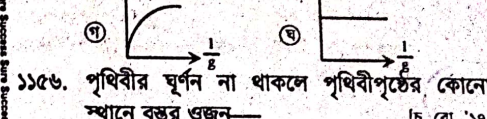 গ 1/g ঘ 1/g
১১৫৬. পৃথিবীর ঘূর্ণন না থাকলে পৃথিবীপৃষ্ঠের কোনো
স্থানে বস্তুর ওজন—